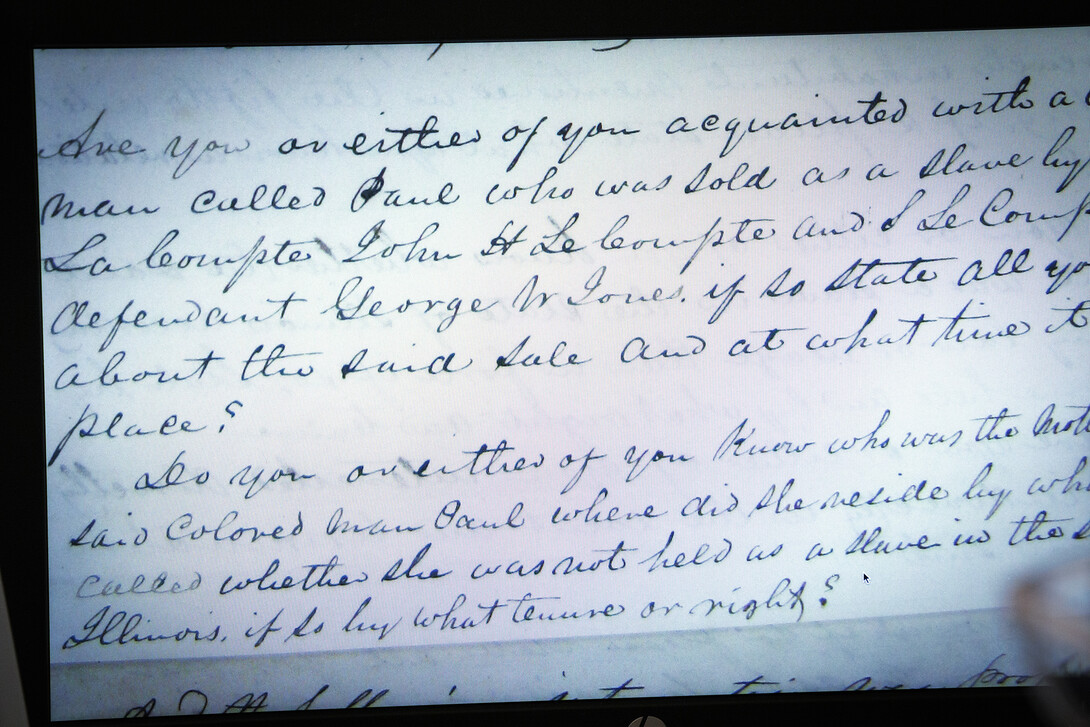 Are you or either of you acquainted with a
man called Paul who was sold as a slave by
La Compte John H Le Compte and S Le Comp
defendant George W Jones. if so state all yo
about the said sale and at what time it
place?
Do you or either of you Know who was the Mot
said Colored man Paul where did she reside by wh
called whether she was not held as a slave in the s
Illinois. if so by what tenure or right?